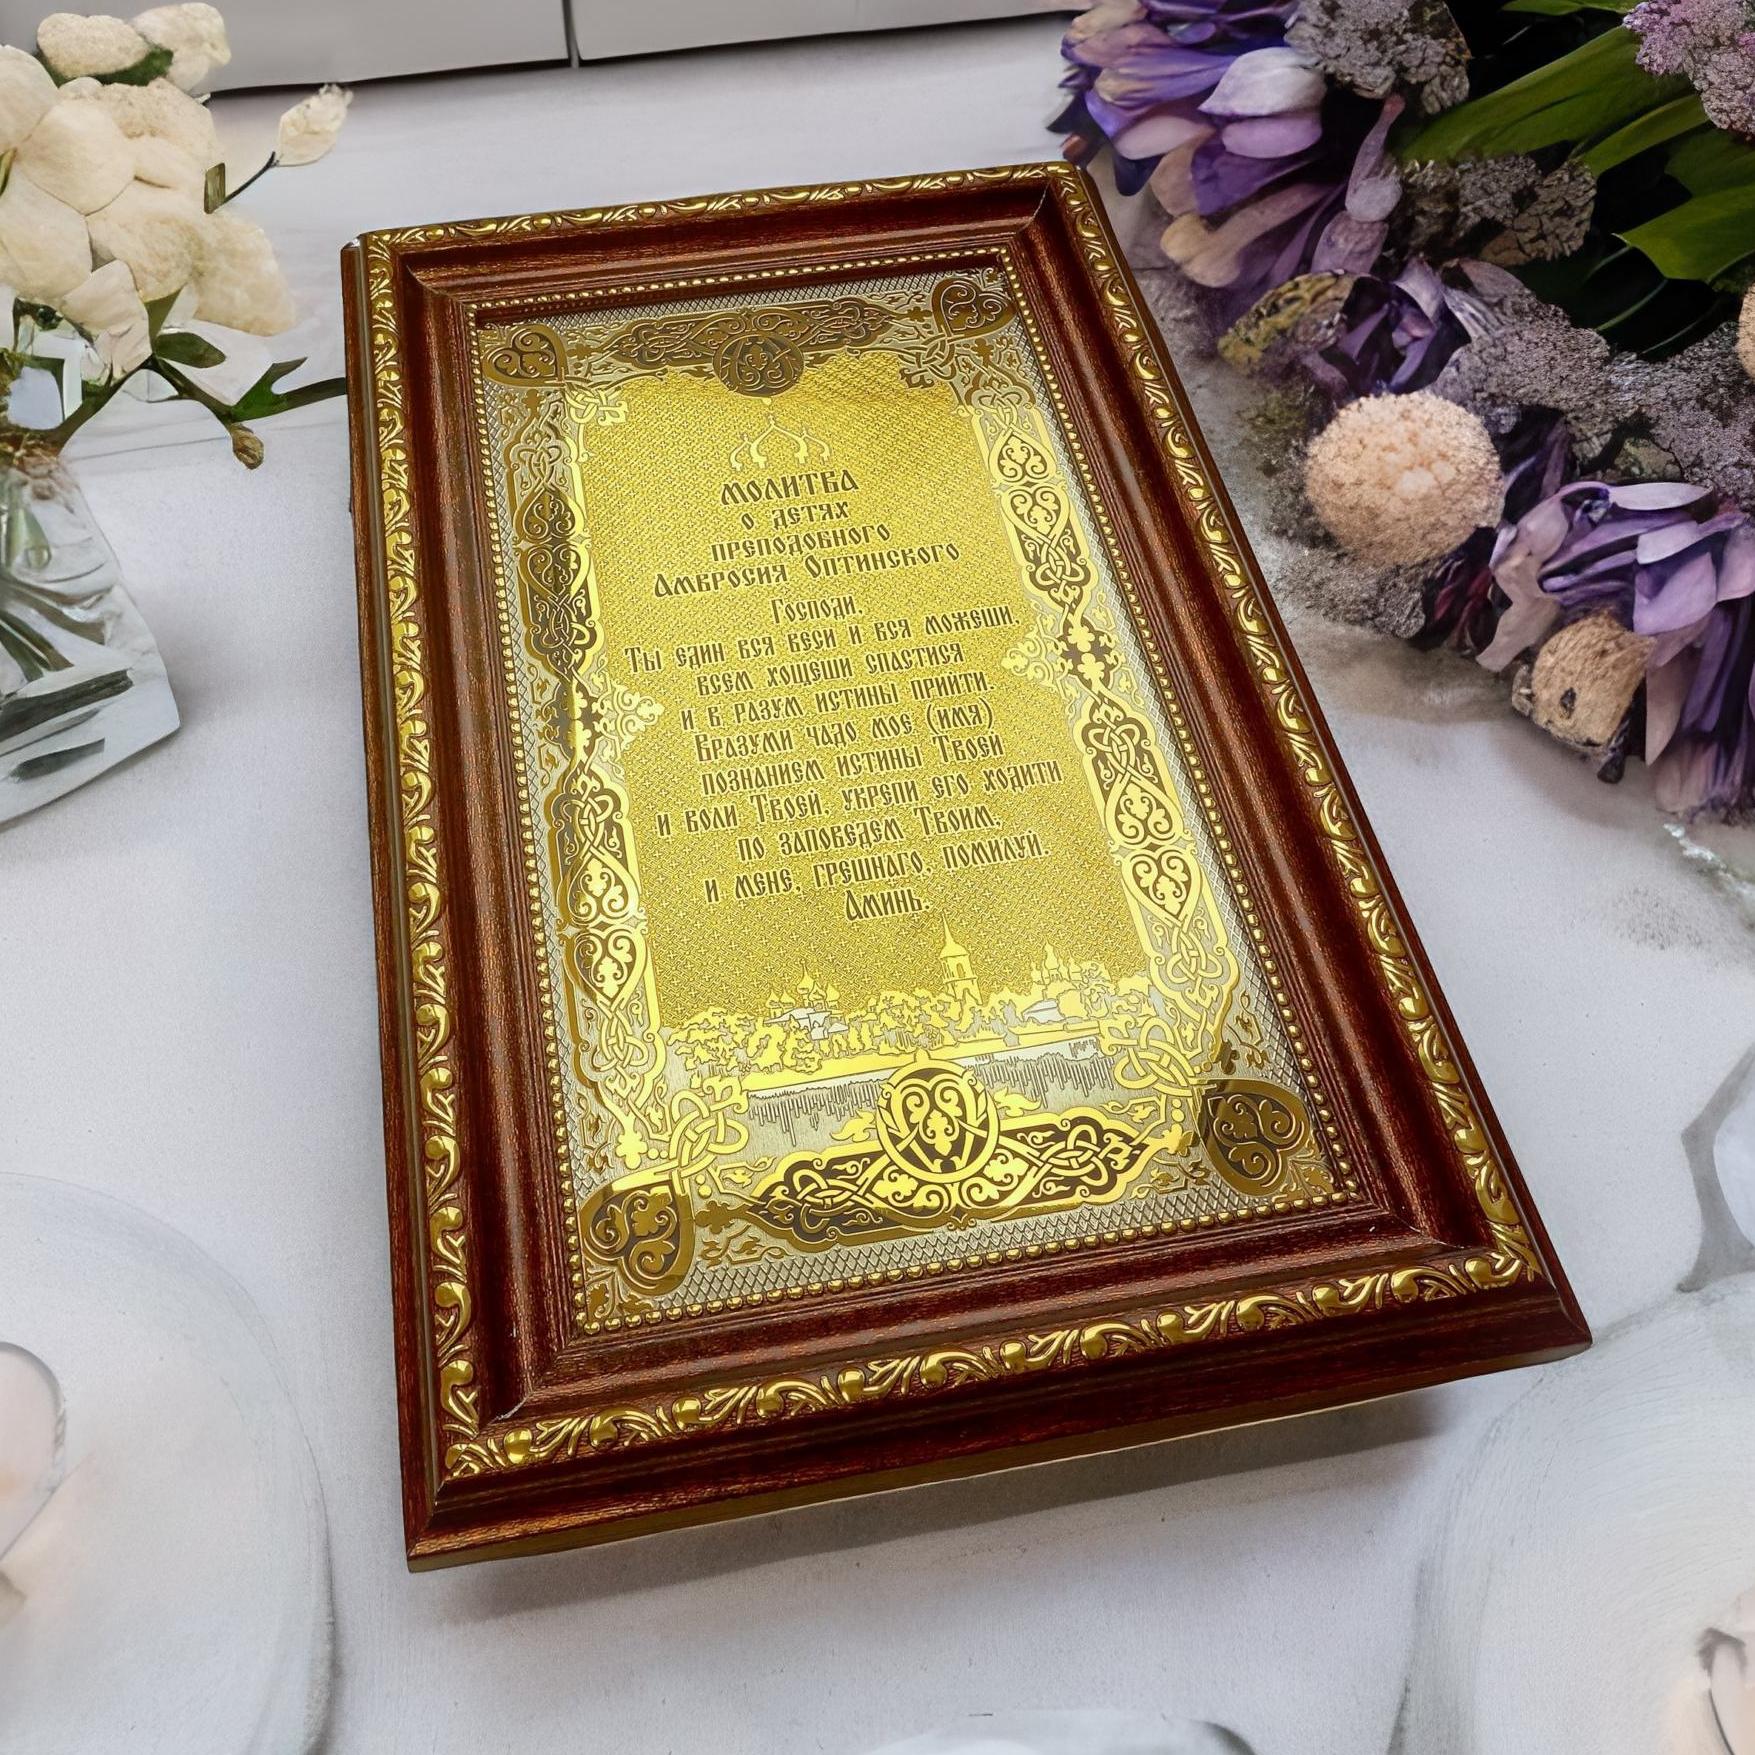 Молитва
о детях
преподобного
Амвросия Оптинского
Господи,
Ты един вся веси и вся можеши,
всем хощеши спастися
и в разум истины прийти.
Вразуми чадо мое (имя)
познанием истины Твоей
и воли Твоей, укрепи его ходити
по заповедем Твоим,
и мене, грешнаго, помилуй.
Аминь.